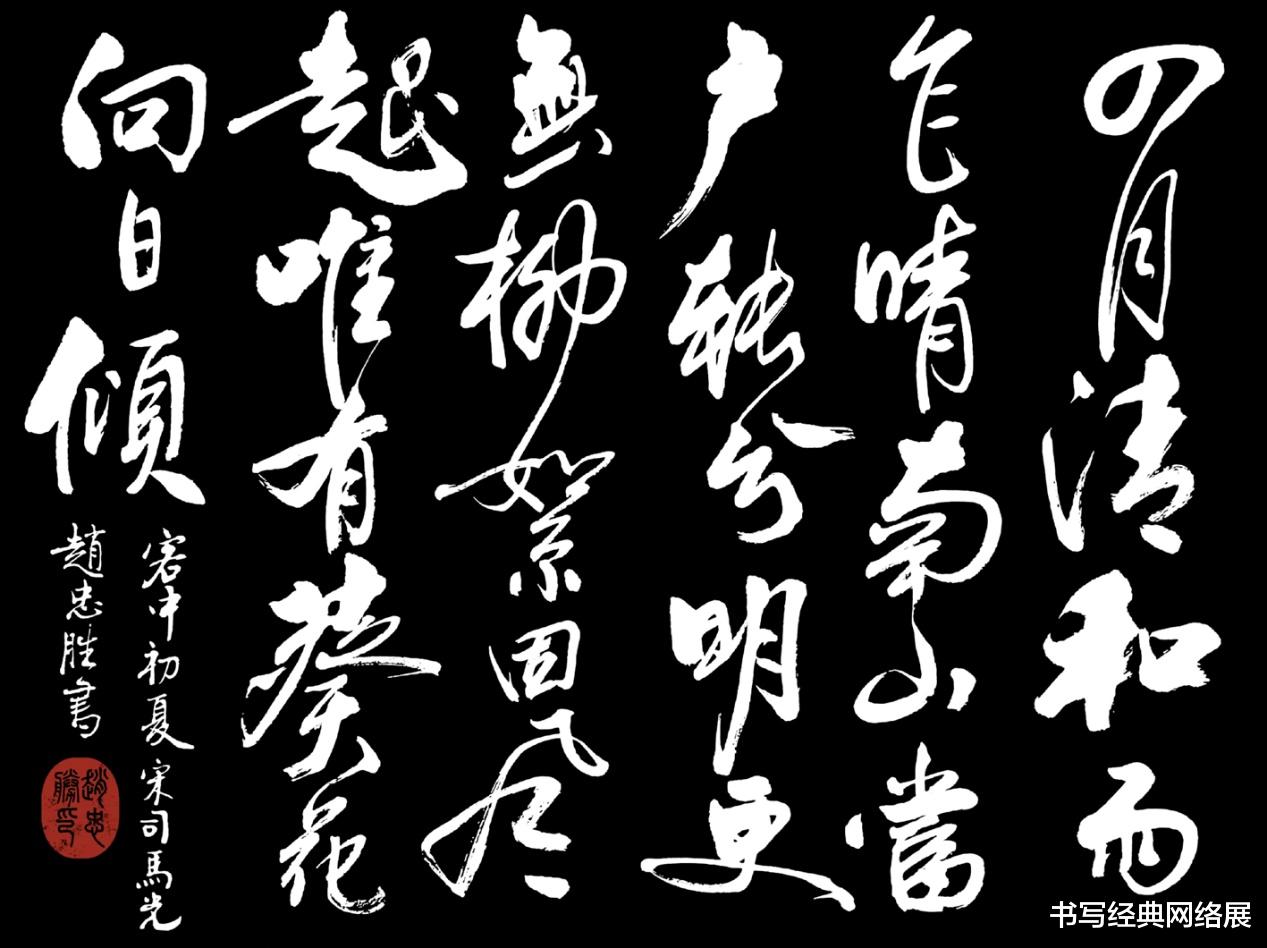 四月清和雨
乍晴南山當
户轉分明更
無柳絮因風
起唯有葵花
向日傾
客中初夏 宋司馬光
趙忠胜書
趙忠勝印
书写经典网络展